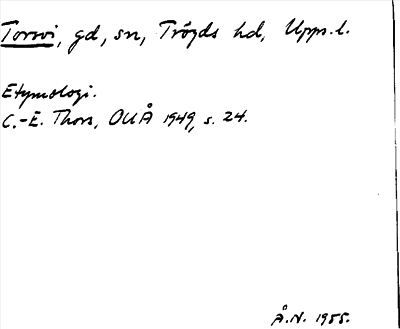 Torsvi, gd, sn, Trögds hd, Upps. l.
Etymologi.
C.-E. Thors, OUÅ 1949, s. 24.
Å.N. 1955.